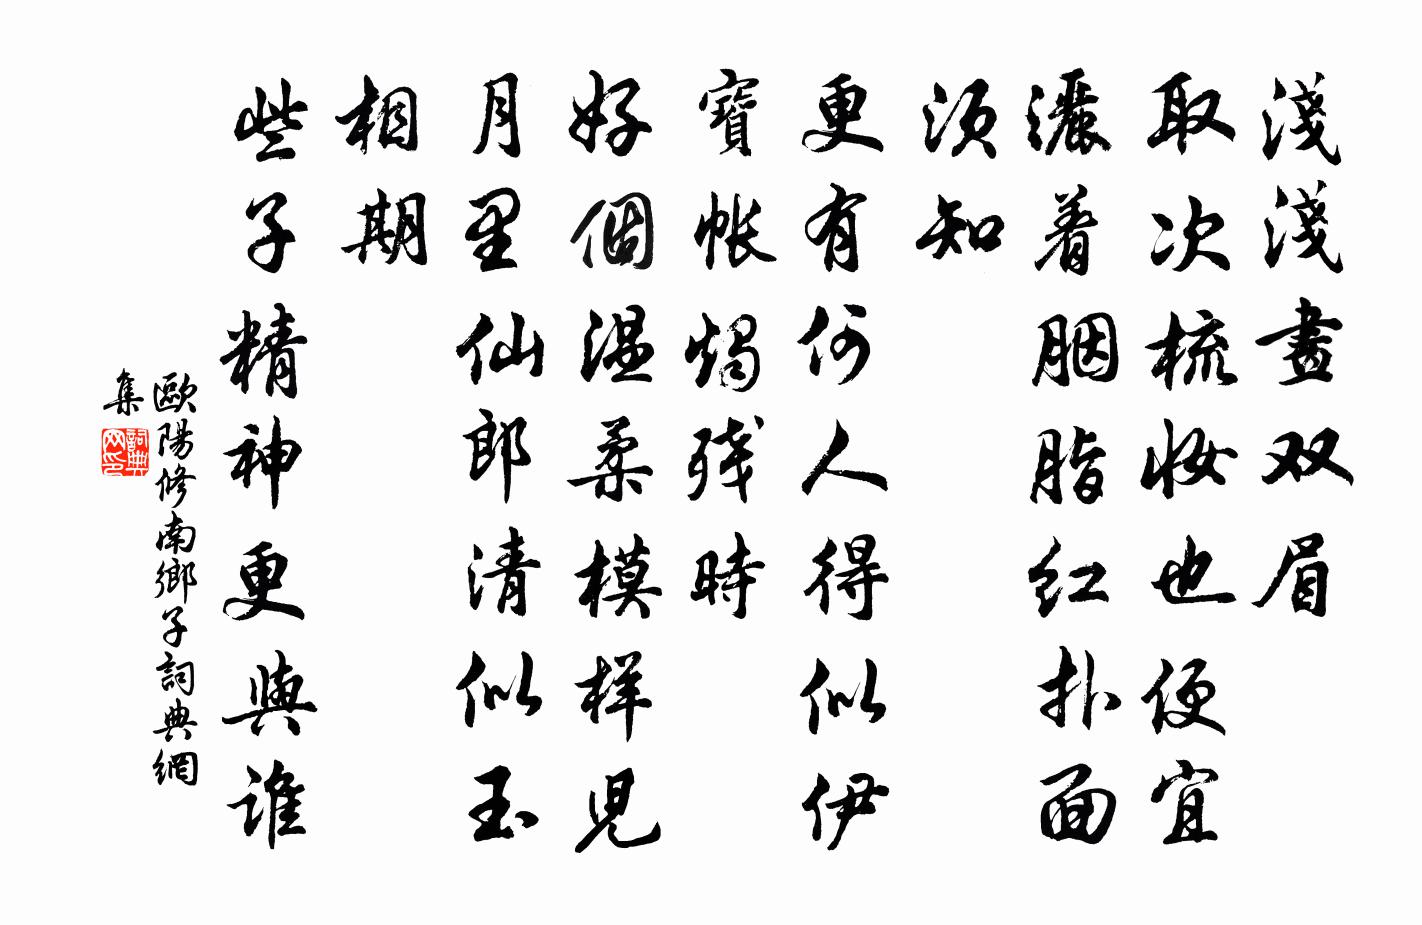 淺淺畫双眉
取次梳妆也便宜
灑着胭脂红扑面
须知
更有何人得似伊
寶帐燭残時
好個温柔模样児
月里仙郎清似玉
相期
些子精神更與谁
歐陽修南鄉子詞典網
集
詞典
网印